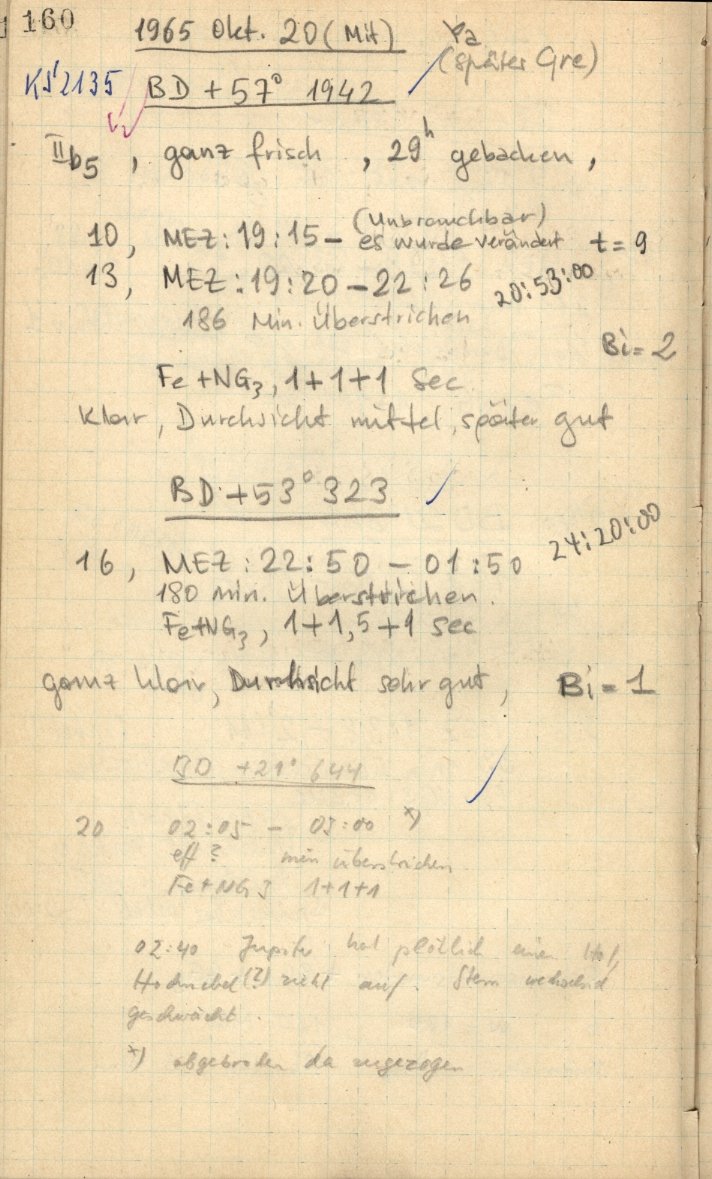 160 1965 Okt. 20 (Mit) Pa
(später Gre)
KS 2135 BD + 57° 1942
IIb5, ganz frisch, 29h gebacken,
(Unbrauchbar)
10, MEZ: 19:15 – es wurde verändert t = 9
13, MEZ: 19:20 – 22:26 20:53:00
186 Min. Überstrichen
Bi = 2
Fe + NG3, 1+1+1 Sec
Klar, Durchsicht mittel, später gut
BD + 53° 323
24:20:00
16, MEZ: 22:50 – 01:50
180 min. Überstrichen.
Fe+NG3, 1+1,5+1 sec
ganz klar, Durchsicht sehr gut, Bi = 1
BD +21° 644
20 02:05 – 03:00 *)
eff ? min überstrichen
Fe + NG3 1+1+1
02:40 Jupiter hat plötzlich einen Hof,
Hochnebel (?) zieht auf. Stern wechselnd
geschwächt.
*) abgebrochen da zugezogen